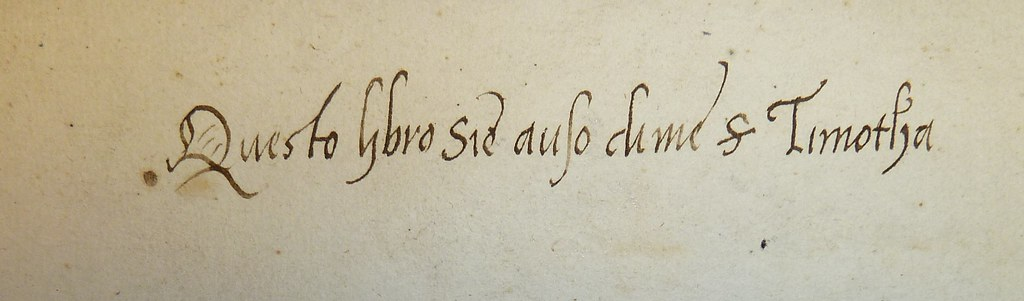 Questo libro sie auso di me S Timotha